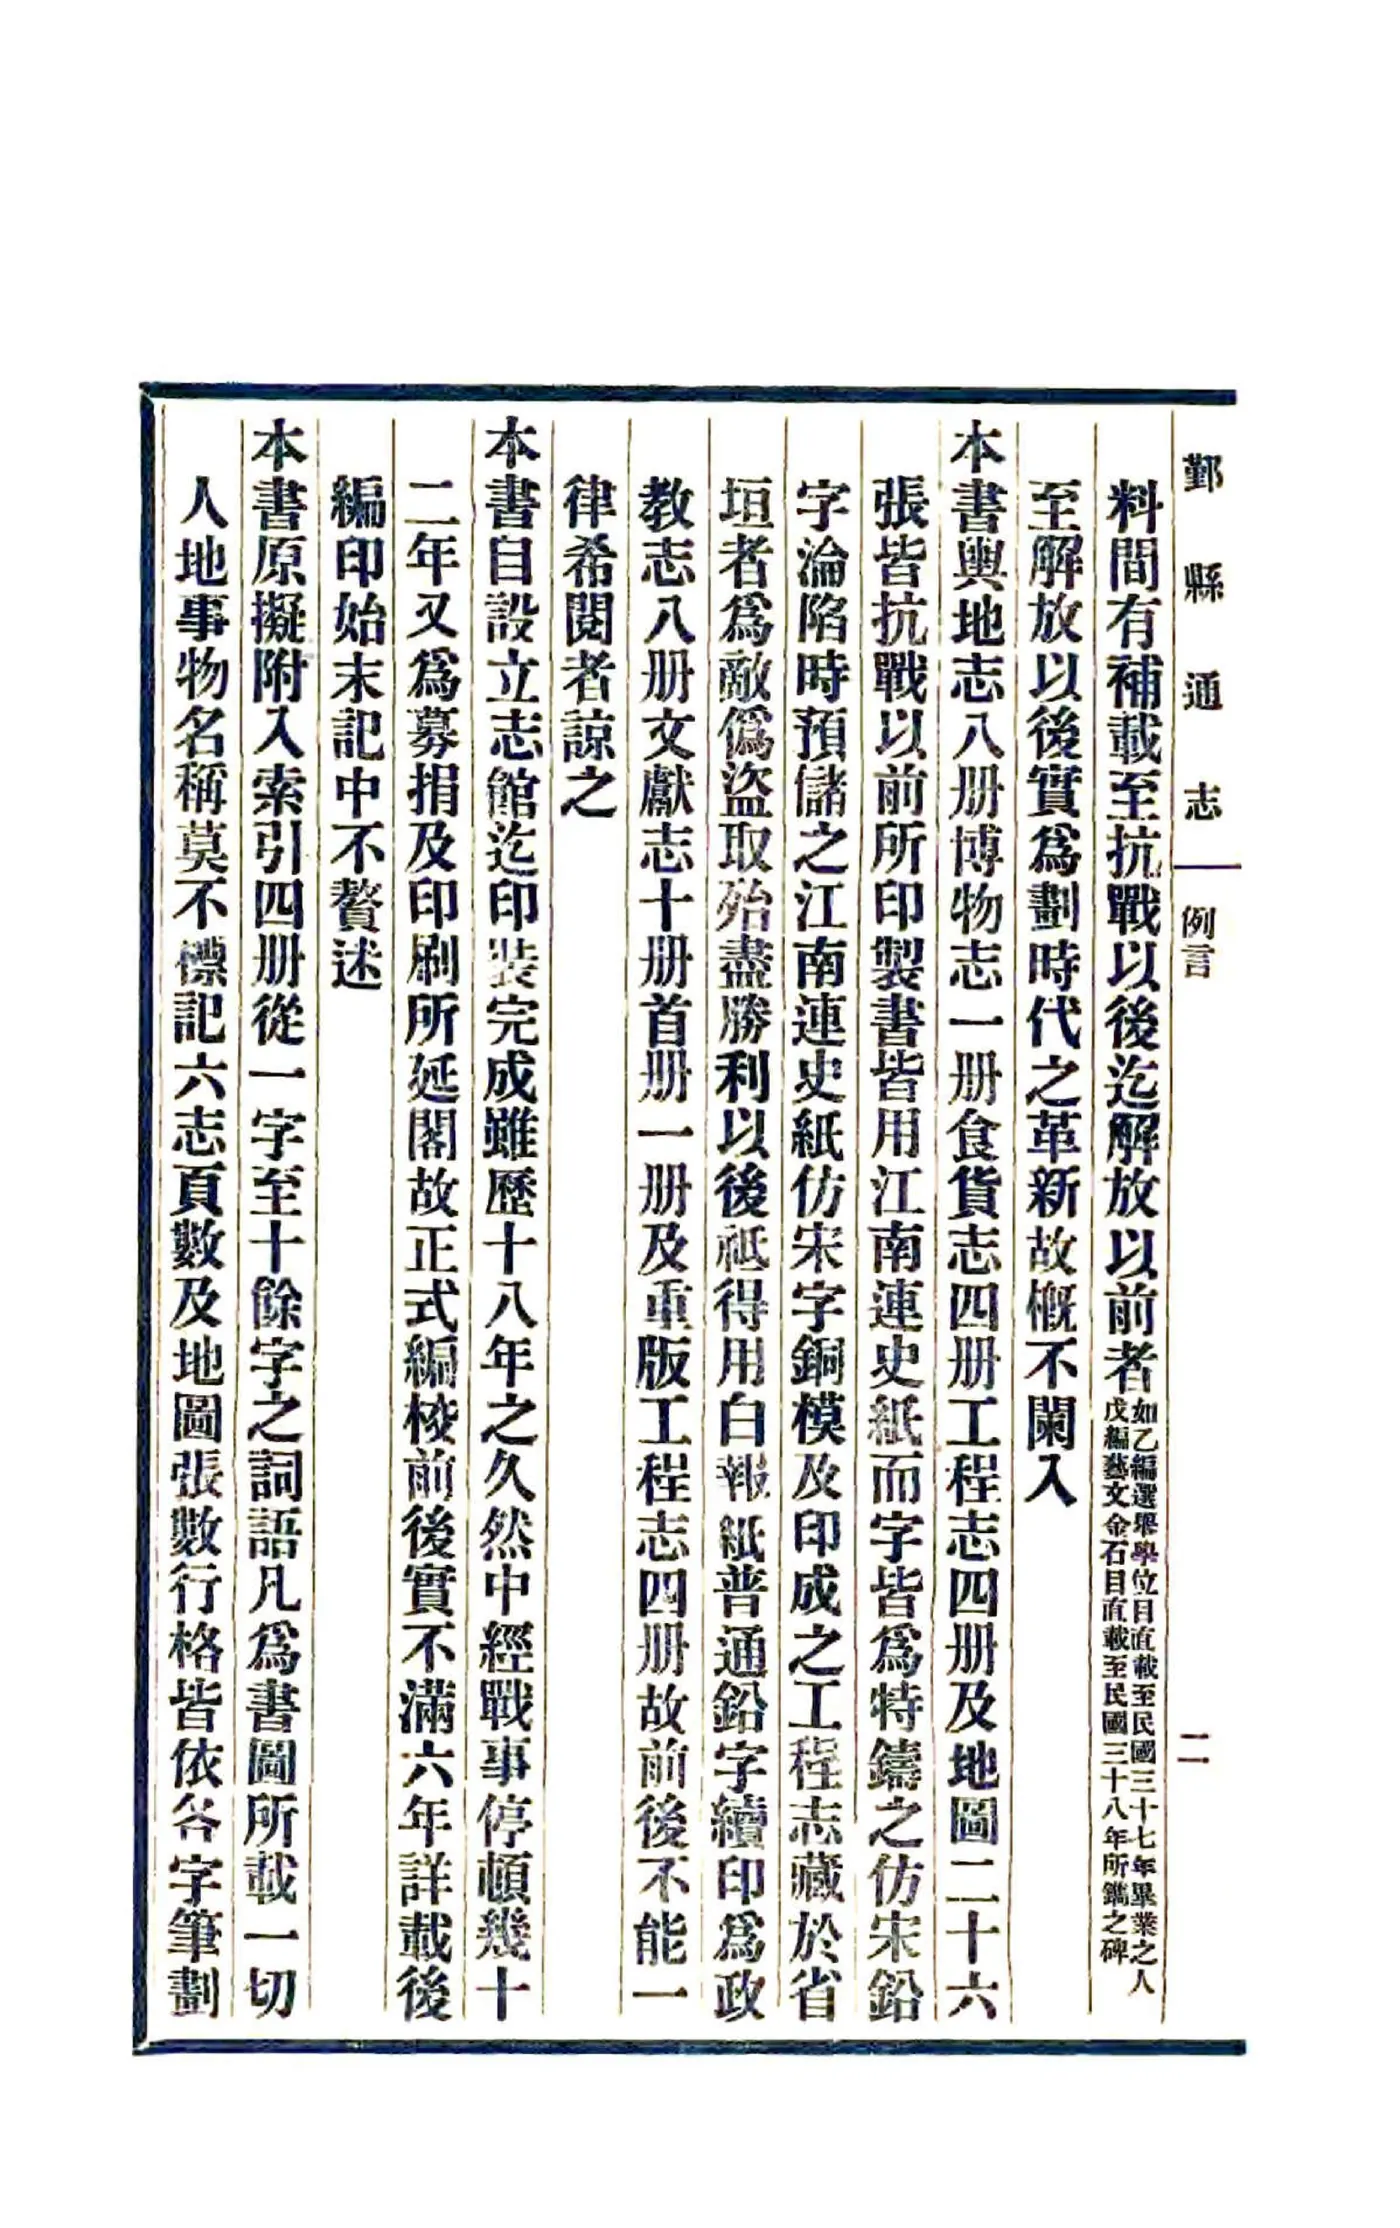 鄞縣通志 例言 二
料間有補載至抗戰以後迄解放以前者如乙編選舉學位目直載至民國三十七年畢業之人
戊編藝文金石目直載至民國三十八年所鐫之碑
至解放以後實爲劃時代之革新故槪不闌入
本書輿地志八册博物志一册食貨志四册工程志四册及地圖二十六
張皆抗戰以前所印製書皆用江南連史紙而字皆爲特鑄之仿宋鉛
字淪陷時預儲之江南連史紙仿宋字銅模及印成之工程志藏於省
垣者爲敵僞盜取殆盡勝利以後祗得用白報紙普通鉛字續印爲政
教志八册文獻志十册首册一册及重版工程志四册故前後不能一
律希閱者諒之
本書自設立志館迄印裝完成雖歷十八年之久然中經戰事停頓幾十
二年又爲募捐及印刷所延閣故正式編校前後實不滿六年詳載後
編印始末記中不贅述
本書原擬附入索引四册從一字至十餘字之詞語凡爲書圖所載一切
人地事物名稱莫不標記六志頁數及地圖張數行格皆依各字筆劃